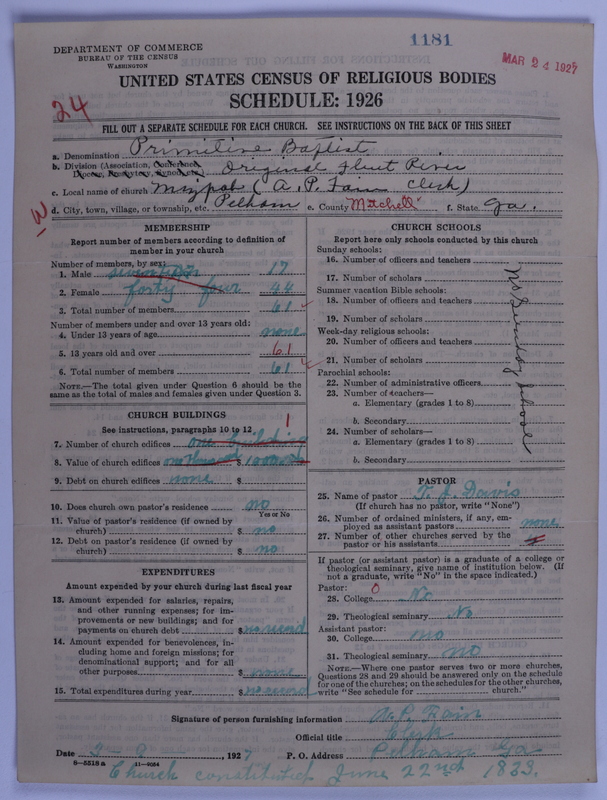 1181
MAR 24 1927
DEPARTMENT OF COMMERCE
BUREAU OF THE CENSUS
WASHINGTON
UNITED STATES CENSUS OF RELIGIOUS BODIES
SCHEDULE: 1926
24
FILL OUT A SEPARATE SCHEDULE FOR EACH CHURCH. SEE INSTRUCTIONS ON THE BACK OF THIS SHEET
a. Denomination Primitive Baptist
b. Division (Association, Conference, Original Flint River
Diocese, Presbytery, Synod, etc.)
c. Local name of church (A. P. Fain Clerk)
W
d. City, town, village, or township, etc. Pelham e. County Mitchell f. State Ga.
MEMBERSHIP
Report number of members according to definition of
member in your church
Number of members, by sex:
1. Male seventeen 17
2. Female forty four 44
3. Total number of members 61
Number of members under and over 13 years old:
4. Under 13 years of age none
5. 13 years old and over 61
6. Total number of members 61
NOTE.—The total given under Question 6 should be the
same as the total of males and females given under Question 3.
CHURCH BUILDINGS
See instructions, paragraphs 10 to 12
1
7. Number of church edifices one building
8. Value of church edifices one thousand $ 1000
9. Debt on church edifices none $
10. Does church own pastor's residence no
Yes or No
11. Value of pastor's residence (if owned by
church) $ no
12. Debt on pastor's residence (if owned by
church) $ no
EXPENDITURES
Amount expended by your church during last fiscal year
13. Amount expended for salaries, repairs,
and other running expenses; for im-
provements or new buildings; and for
payments on church debt $ no record
14. Amount expended for benevolences, in-
cluding home and foreign missions; for
denominational support; and for all
other purposes $ none
15. Total expenditures during year $ no record
CHURCH SCHOOLS
Report here only schools conducted by this church
Sunday schools:
16. Number of officers and teachers
17. Number of scholars
Summer vacation Bible schools:
18. Number of officers and teachers
19. Number of scholars
Week-day religious schools:
20. Number of officers and teachers
21. Number of scholars
Parochial schools:
22. Number of administrative officers
23. Number of teachers—
a. Elementary (grades 1 to 8)
b. Secondary
24. Number of scholars—
a. Elementary (grades 1 to 8)
b. Secondary
No Sunday school
PASTOR
25. Name of pastor T. J. Davis
(If church has no pastor, write "None")
26. Number of ordained ministers, if any, em-
ployed as assistant pastors none
27. Number of other churches served by the
pastor or his assistants
If pastor (or assistant pastor) is a graduate of a college or
theological seminary, give name of institution below. (If
not a graduate, write "No" in the space indicated.)
Pastor: 0
28. College No
29. Theological seminary No
Assistant pastor:
30. College no
31. Theological seminary no
NOTE.—Where one pastor serves two or more churches,
Questions 28 and 29 should be answered only on the schedule
for one of the churches; on the schedules for the other churches,
write "See schedule for church."
Signature of person furnishing information A. P. Fain
Official title Clerk
Date 3-8-, 1927 P. O. Address Pelham Ga
8-5518a 11-9034
Church constituted June 22nd 1833.